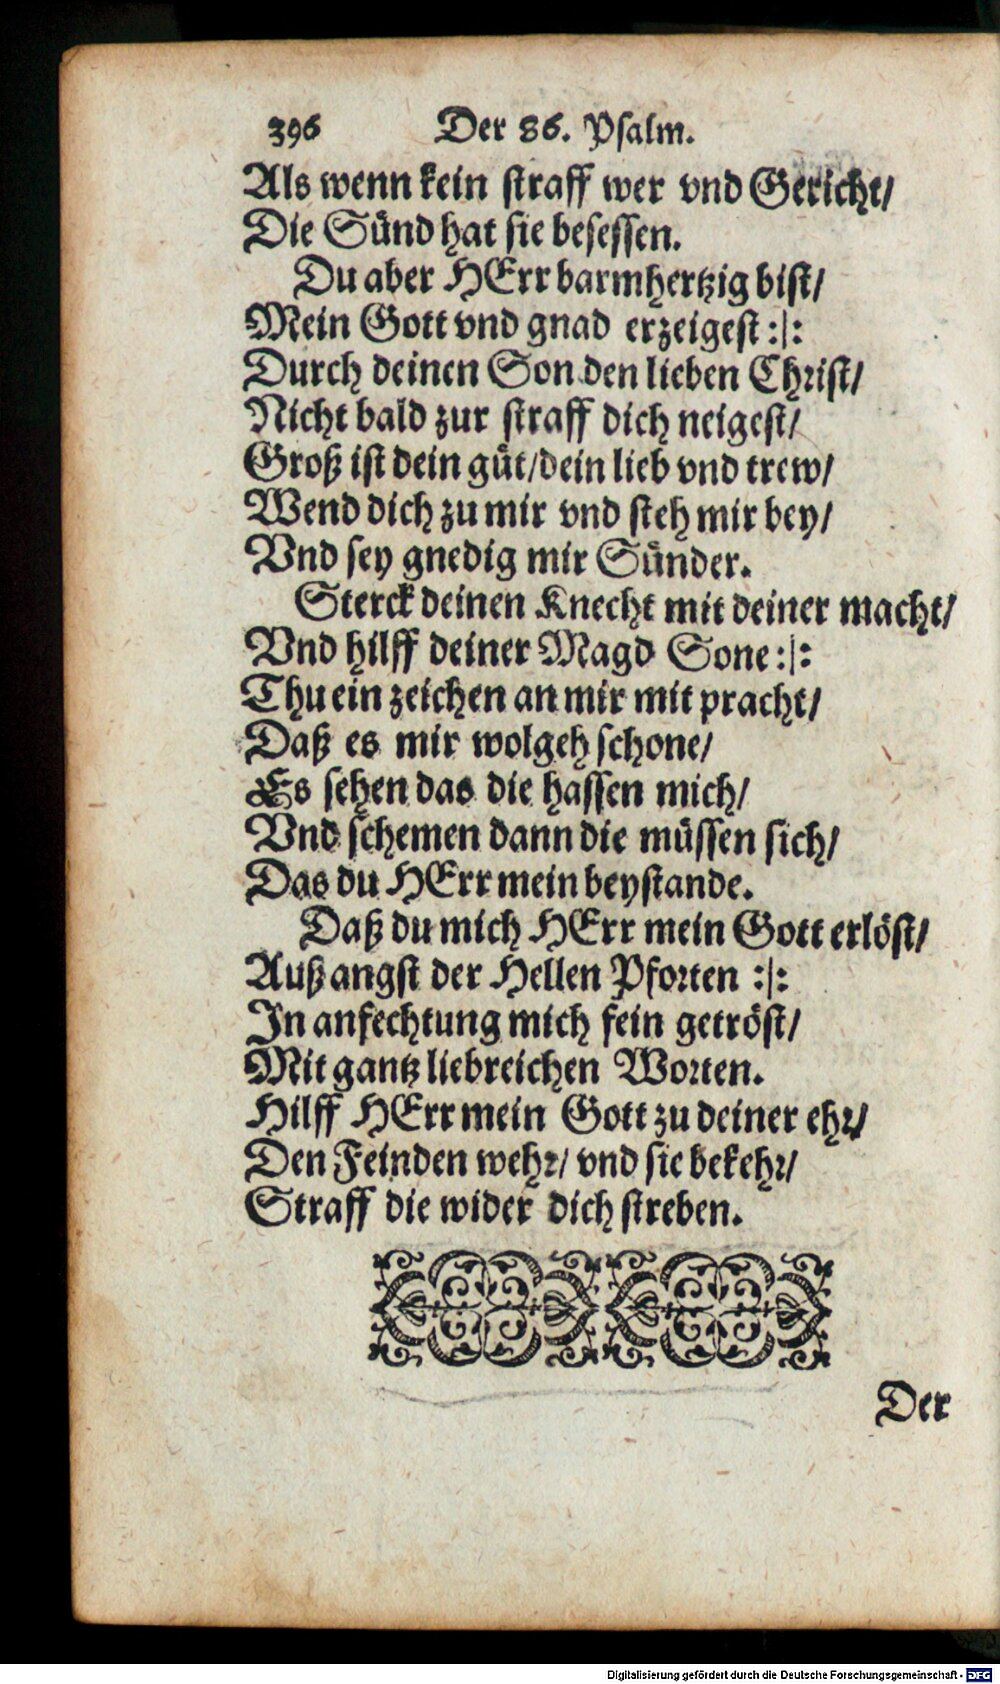 396 Der 86. Psalm.
Als wenn kein straff wer vnd Gericht/
Die Sünd hat sie besessen.
Du aber HErr barmhertzig bist/
Mein Gott vnd gnad erzeigest :|:
Durch deinen Son den lieben Christ/
Nicht bald zur straff dich neigest/
Groß ist dein güt/dein lieb vnd trew/
Wend dich zu mir vnd steh mir bey/
Vnd sey gnedig mir Sünder.
Sterck deinen Knecht mit deiner macht/
Vnd hilff deiner Magd Sone :|:
Thu ein zeichen an mir mit pracht/
Daß es mir wolgeh schone/
Es sehen das die hassen mich/
Vnd schemen dann die müssen sich/
Das du HErr mein beystande.
Daß du mich HErr mein Gott erlöst/
Auß angst der Hellen Pforten :|:
In anfechtung mich fein getröst/
Mit gantz liebreichen Worten.
Hilff HErr mein Gott zu deiner ehr/
Den Feinden wehr/ vnd sie bekehr/
Straff die wider dich streben.
Der
Digitalisierung gefördert durch die Deutsche Forschungsgemeinschaft - DFG